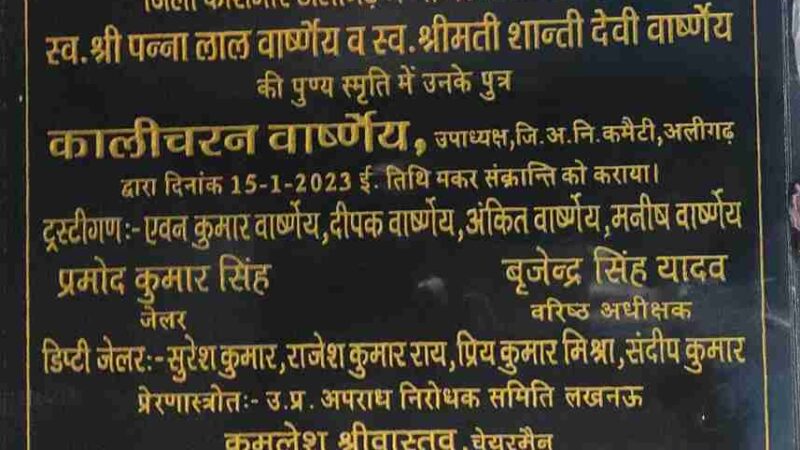 जिला कारागार अलीगढ़
स्व.श्री पन्ना लाल वार्ष्णेय व स्व.श्रीमती शान्ती देवी वार्ष्णेय
की पुण्य स्मृति में उनके पुत्र
कालीचरन वार्ष्णेय, उपाध्यक्ष,जि.अ.नि.कमैटी,अलीगढ़
द्वारा दिनांक 15-1-2023 ई. तिथि मकर संक्रान्ति को कराया।
ट्रस्टीगण:- एवन कुमार वार्ष्णेय,दीपक वार्ष्णेय,अंकित वार्ष्णेय,मनीष वार्ष्णेय
प्रमोद कुमार सिंह बृजेन्द्र सिंह यादव
जेलर वरिष्ठ अधीक्षक
डिप्टी जेलर:- सुरेश कुमार,राजेश कुमार राय,प्रिय कुमार मिश्रा,संदीप कुमार
प्रेरणास्त्रोतः- उ.प्र. अपराध निरोधक समिति लखनऊ
कमलेश श्रीवास्तव,चेयरमैन